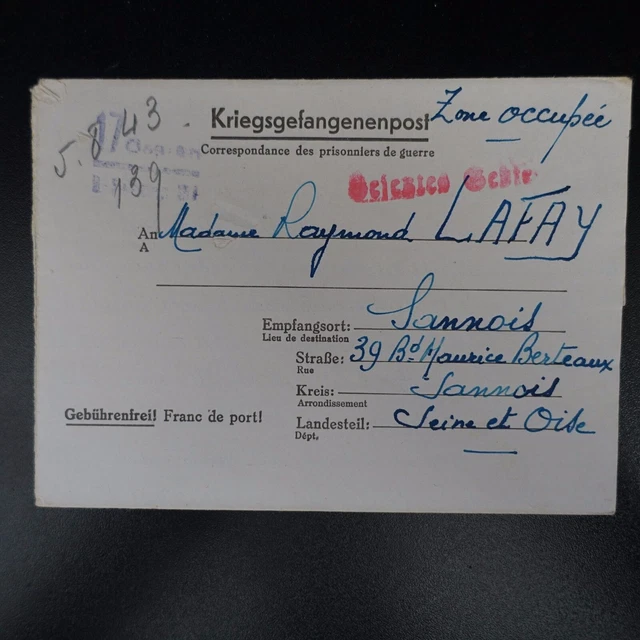 Kriegsgefangenenpost
Zone occupée
Correspondance des prisonniers de guerre
5.8 43
17
139
An Madame Raymond LAFAY
A
Empfangsort: Sannois
Lieu de destination
Straße: 39 Bd Maurice Berteaux
Rue
Kreis: Sannois
Arrondissement
Gebührenfrei! Franc de port!
Landesteil: Seine et Oise
Dépt.